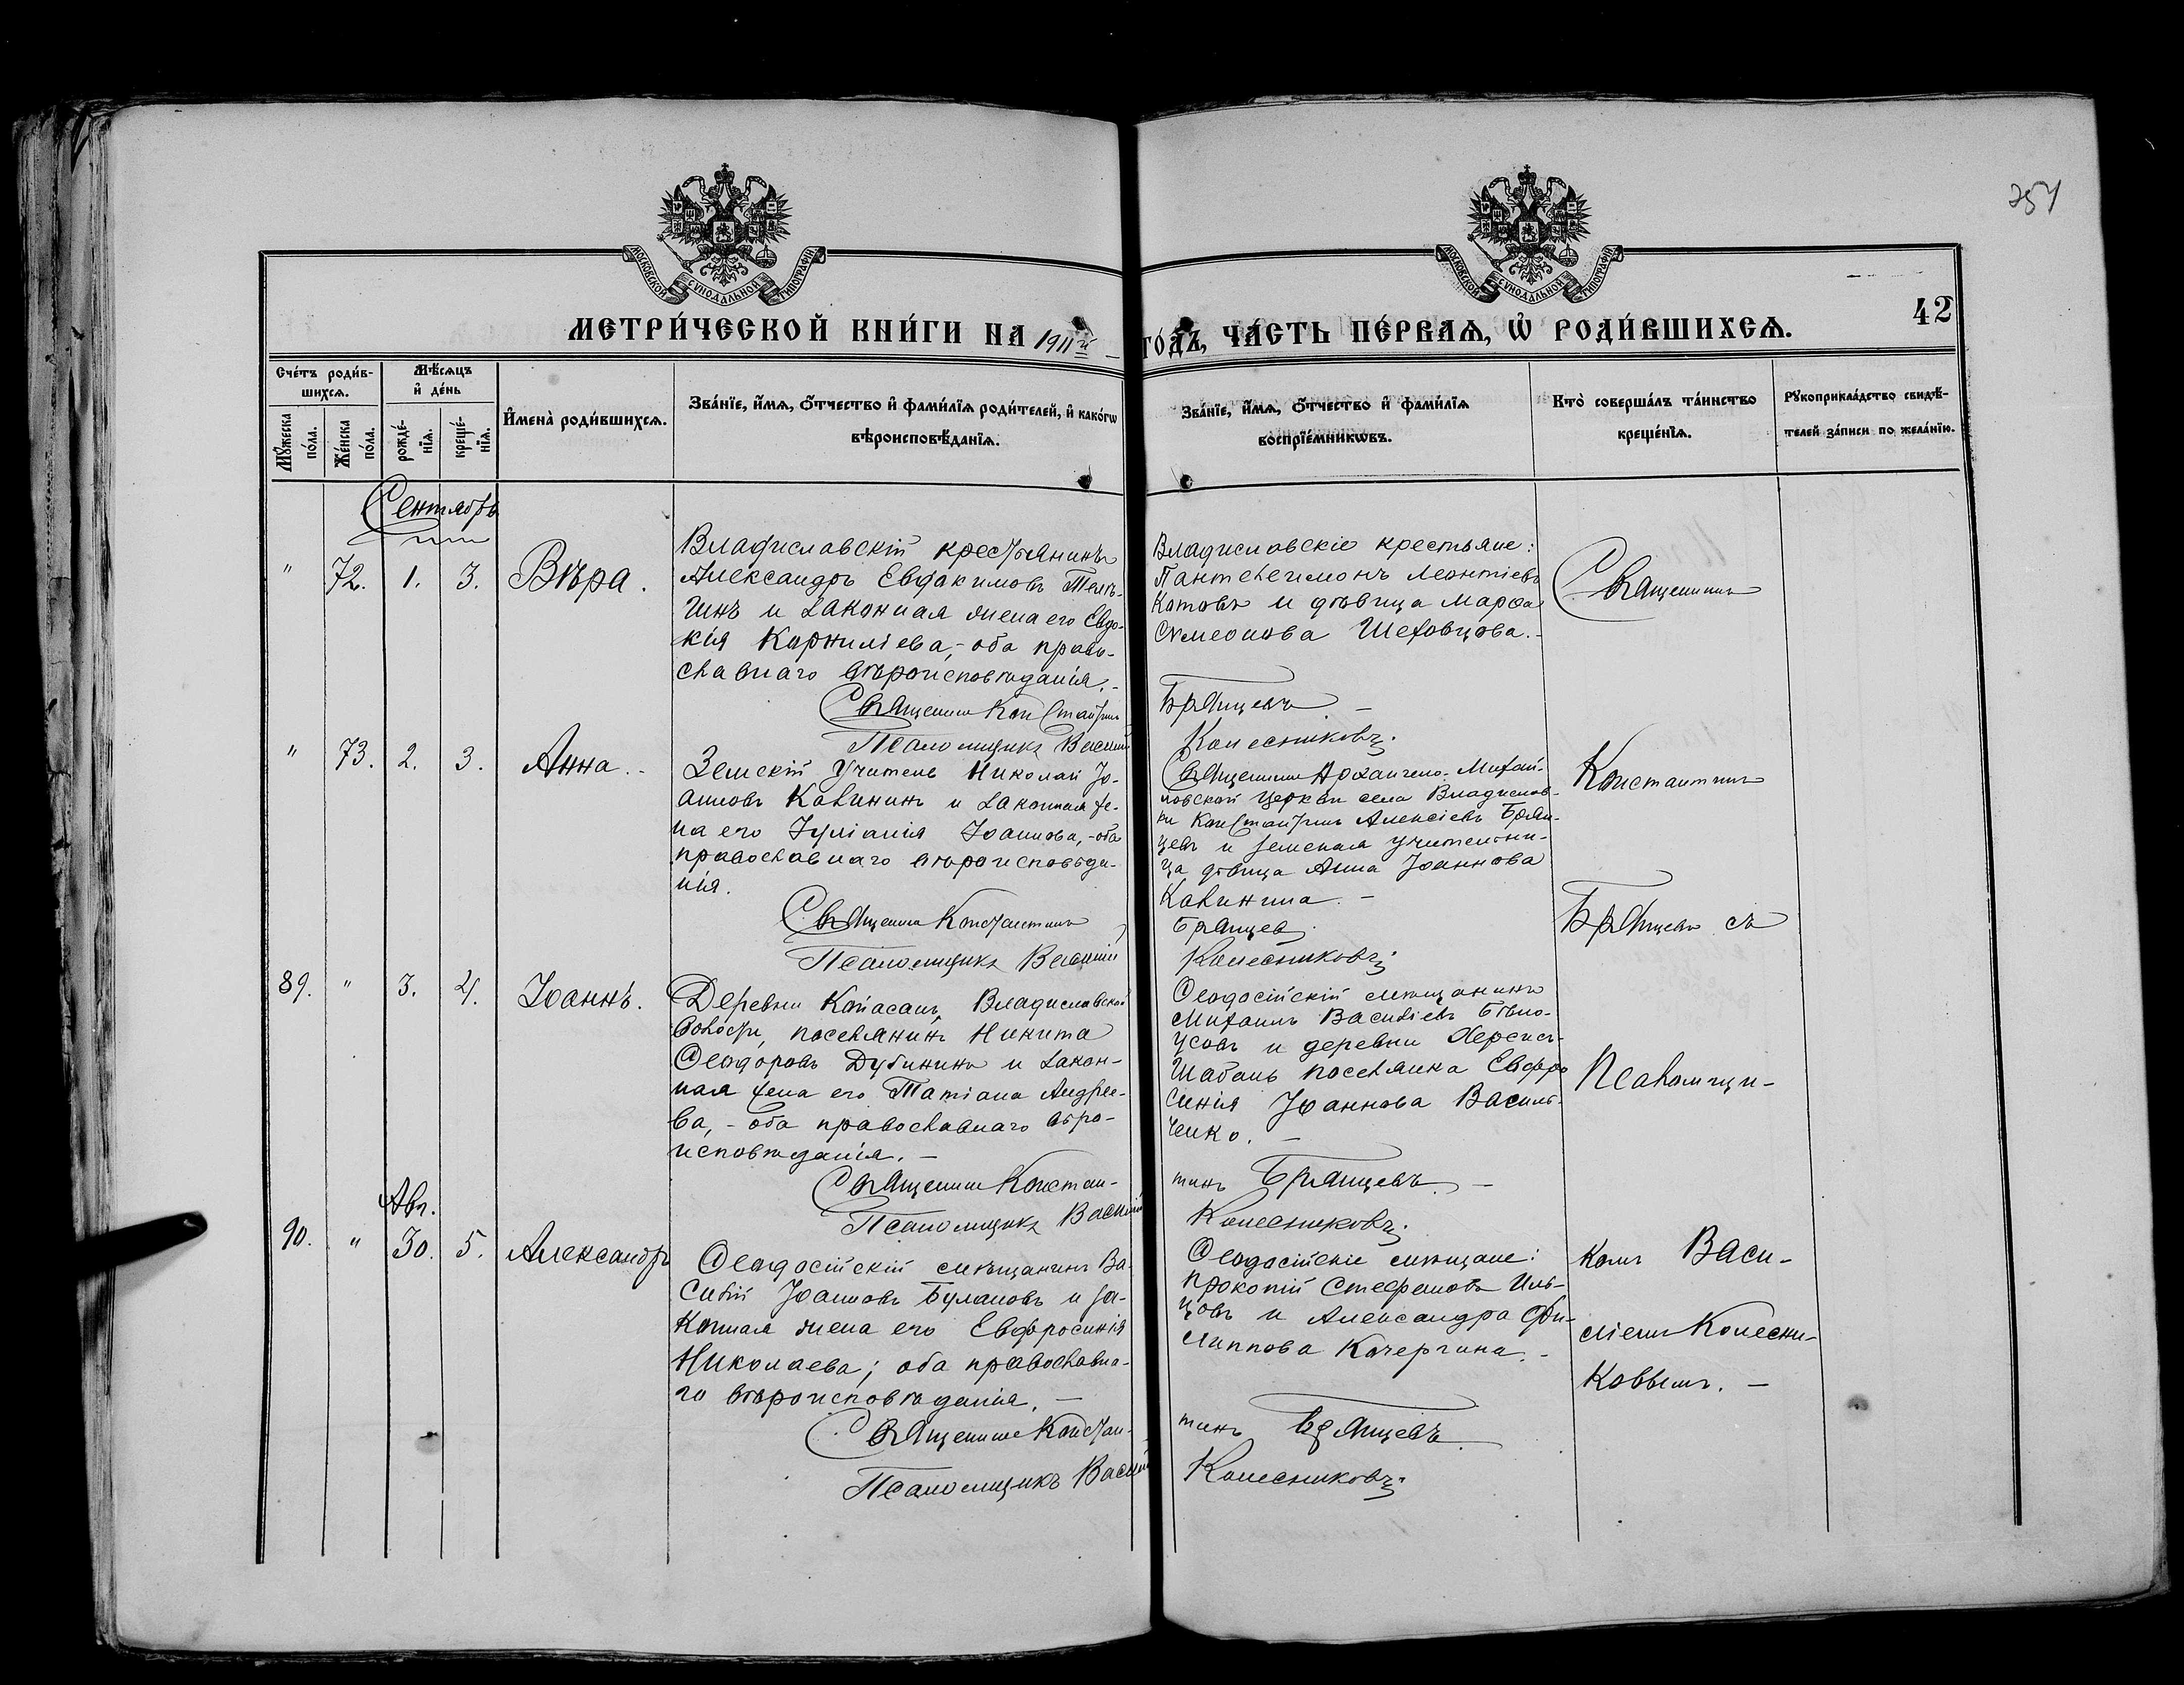 254
МОСКОВСКОЙ СѴНОДАЛЬНОЙ ТИПОГРАФІИ
МОСКОВСКОЙ СѴНОДАЛЬНОЙ ТИПОГРАФІИ
42
МЕТРИ́ЧЕСКОЙ КНИ́ГИ НА 1911й ГО́ДЪ, ЧА́СТЬ ПЕ́РВАѦ, Ѽ РОДИ́ВШИХСѦ.
Сче́тъ роди́в-
шихсѧ.
Мꙋ́жеска по́ла.
Же́нска по́ла.
Мѣ́сѧцъ
и҆ де́нь
рожде́-
нїѧ.
креще́-
нїѧ.
И҆мена̀ роди́вшихсѧ.
Зва́нїе, и҆́мѧ, ѻ҆́тчество и҆ фами́лїѧ роди́телей, и҆ како́гѡ
вѣроисповѣ́данїѧ.
Зва́нїе, и҆́мѧ, ѻ҆́тчество и҆ фами́лїѧ
воспрїе́мникѡвъ.
Кто̀ соверша́лъ та́инство
креще́нїѧ.
Рꙋкоприкла́дство свидѣ́-
телей за́писи по жела́нїю.
Сентябрь
" 72. 1. 3. Вѣра.
Владиславскій крестьянинъ
Александръ Евдокимовъ Телѣ-
гинъ и законная жена его Евдо-
кія Корниліева,- оба право-
славнаго вѣроисповѣданія.-
Священникъ Константинъ
Псаломщикъ Василій
Владиславскіе крестьяне:
Пантелеимонъ Леонтіевъ
Котовъ и дѣвица Марѳа
Сѵмеонова Шеховцова.-
Брянцевъ -
Колесниковъ.
Священникъ
" 73. 2. 3. Анна.-
Земскій учитель Николай Іо-
анновъ Калининъ и законная же-
на его Іуліанія Іоаннова,-оба
православнаго вѣроисповѣда-
нія.
Священникъ Константинъ
Псаломщикъ Василій
Священникъ Архангело-Михай-
ловской церкви села Владиславов-
ки Константинъ Алексіевъ Брян-
цевъ и земская учительни-
ца дѣвица Анна Іоаннова
Калинина.-
Брянцевъ
Колесниковъ
Константинъ
Брянцевъ съ
89. " 3. 4. Іоаннъ.
Деревни Владиславской
волости, поселянинъ Никита
Ѳеодоровъ Дубининъ и закон-
ная жена его Татіана Андрее-
ва,- оба православнаго вѣро-
исповѣданія.-
Священникъ Констан-
Псаломщикъ Василій
Ѳеодосійскій мѣщанинъ
Михаилъ Василіевъ Бѣло-
усовъ и деревни
Шабань поселянка Евфро
синія Іоаннова Василь-
ченко.-
тинъ Брянцевъ.-
Колесниковъ.
Псаломщи-
Авг.
90. " 30. 5. Александръ
Ѳеодосійскій мѣщанинъ Ва-
силій Іоанновъ Булановъ и за-
конная жена его Евфросинія
Николаева; оба православна-
го вѣроисповѣданія.-
Священникъ Констан-
Псаломщикъ Василій
Ѳеодосійскіе мѣщане:
Прокопій Стефановъ Иль-
цовъ и Александра Фи-
липпова Кочергина.-
тинъ Брянцевъ.
Колесниковъ.
комъ Васи-
ліемъ Колесни-
ковымъ.-